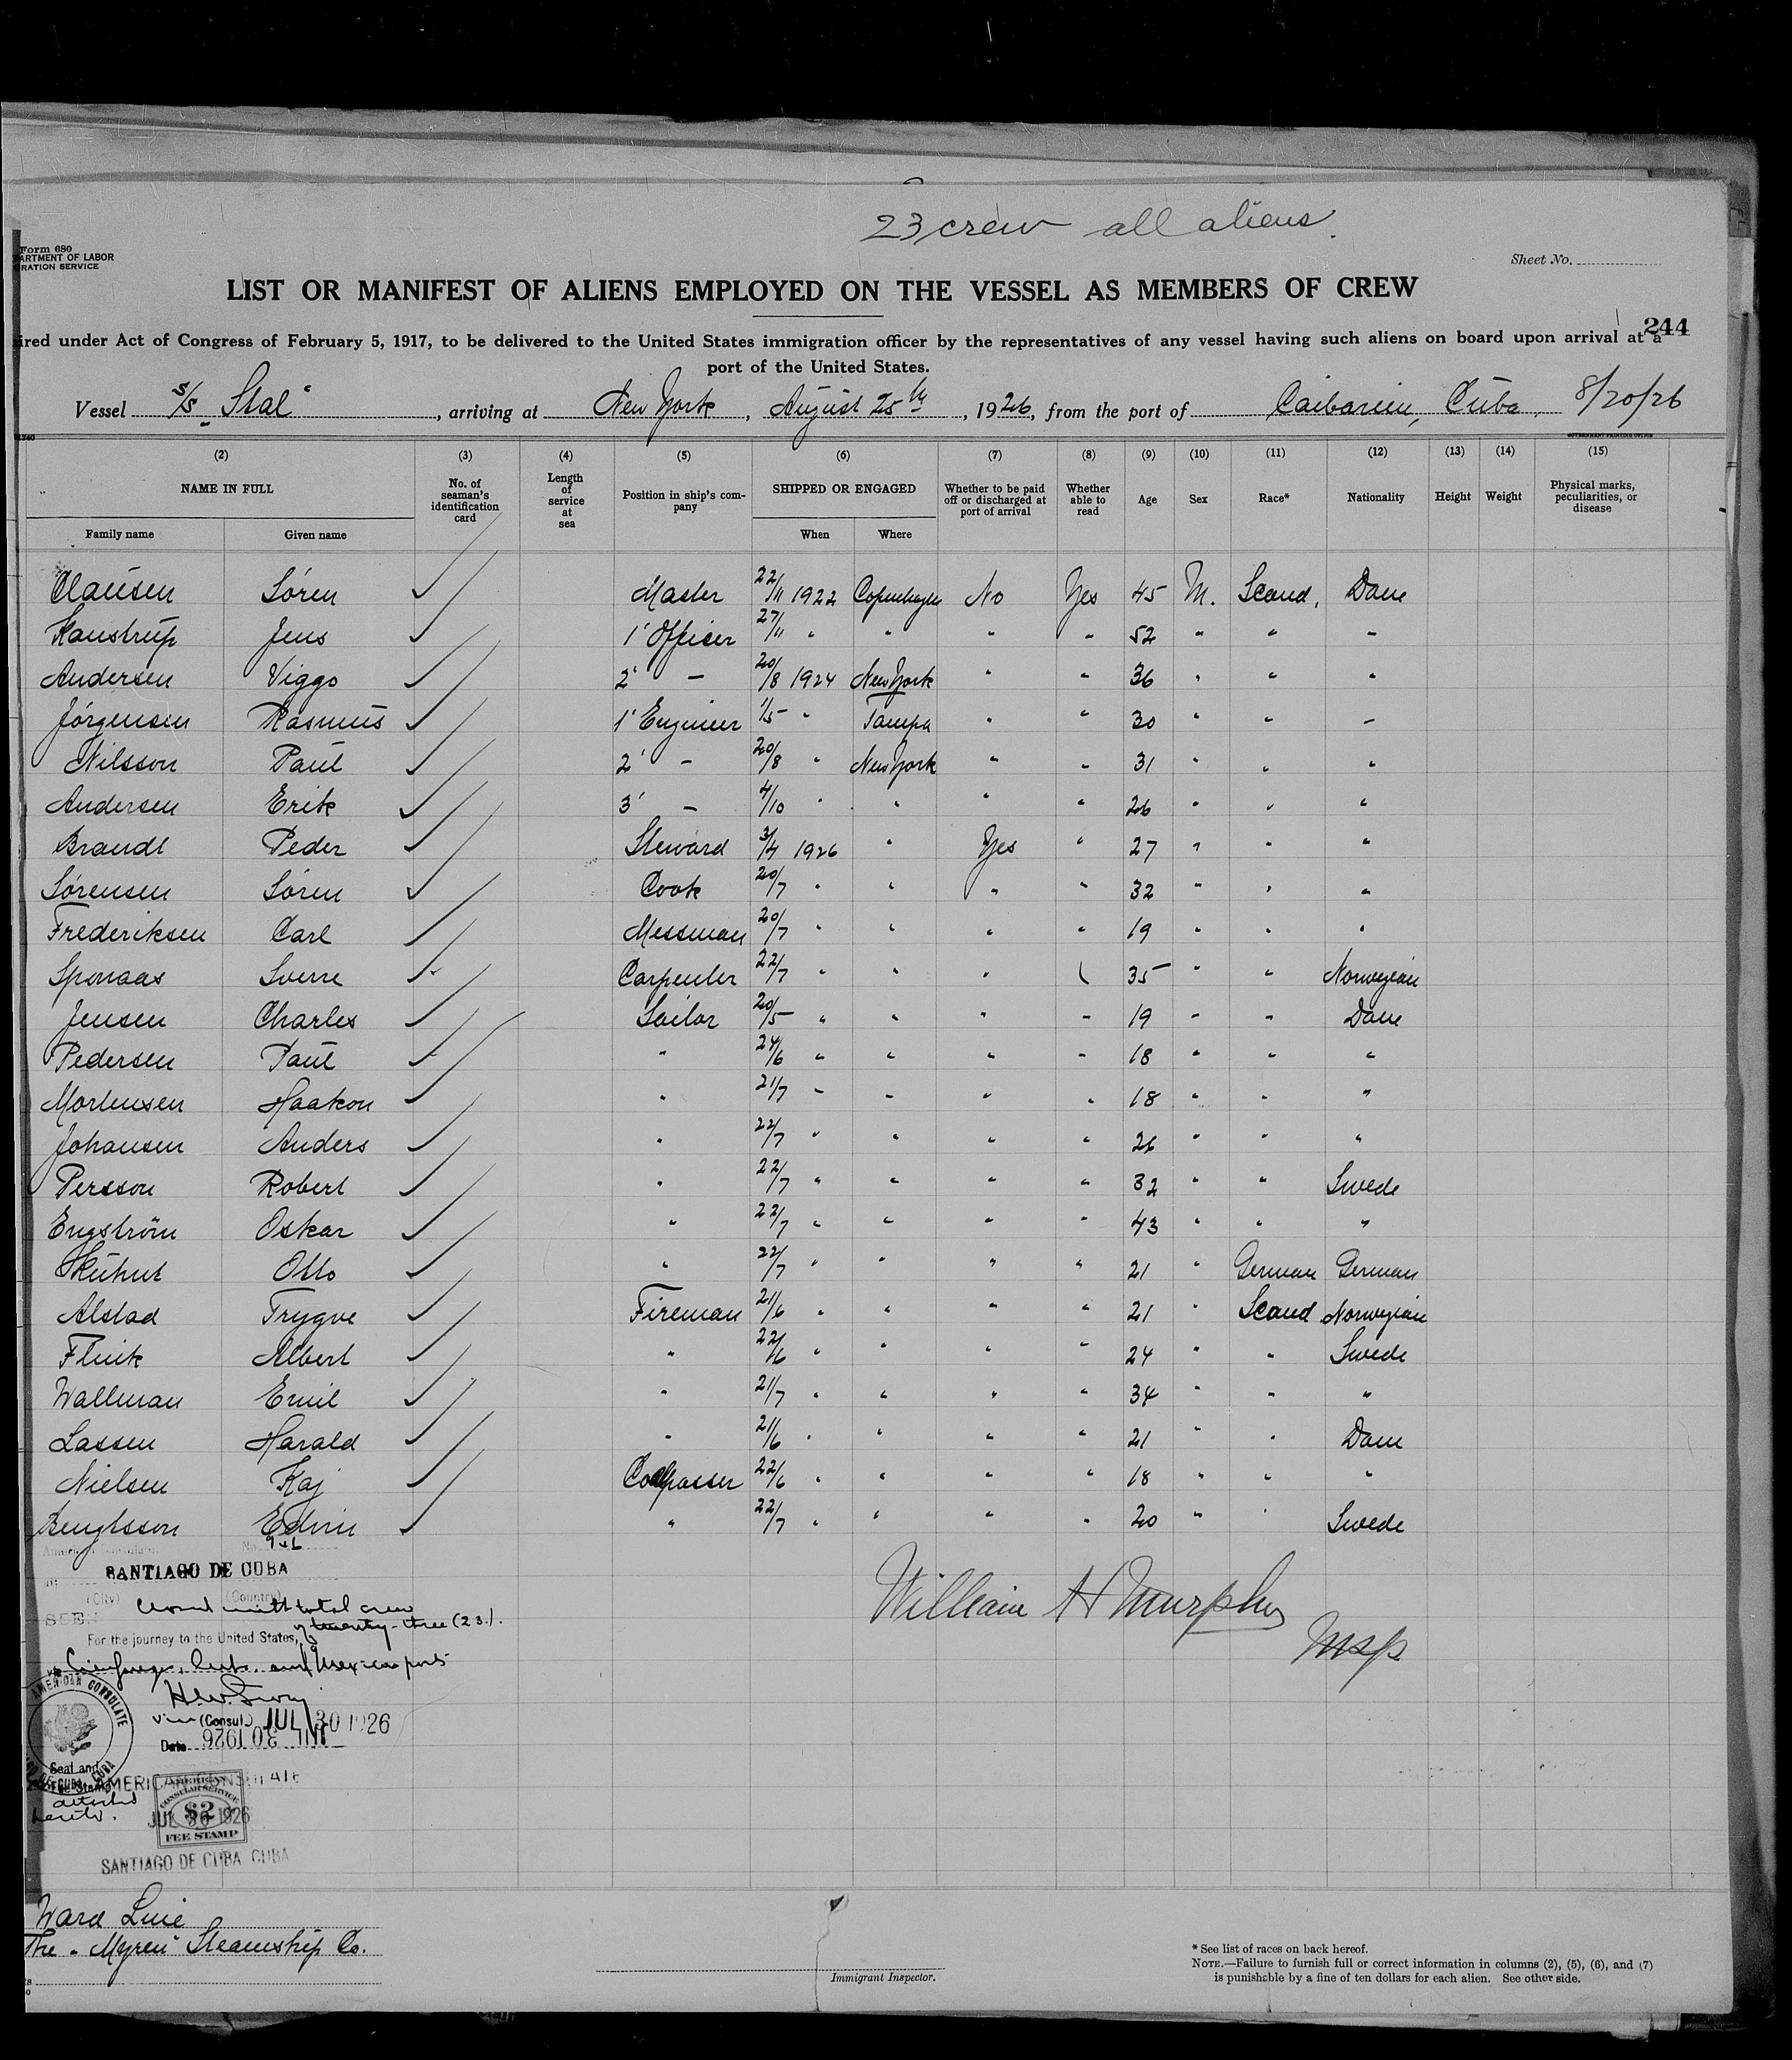 23 crew all aliens.
Form 680
ARTMENT OF LABOR
GRATION SERVICE
Sheet No.
LIST OR MANIFEST OF ALIENS EMPLOYED ON THE VESSEL AS MEMBERS OF CREW
244
ired under Act of Congress of February 5, 1917, to be delivered to the United States immigration officer by the representatives of any vessel having such aliens on board upon arrival at a
port of the United States.
Vessel S/S "Stal", arriving at New York, August 25th, 1926, from the port of Caibarien, Cuba, 8/20/26
(2) (3) (4) (5) (6) (7) (8) (9) (10) (11) (12) (13) (14) (15)
NAME IN FULL No. of seaman's identification card Length of service at sea Position in ship's company SHIPPED OR ENGAGED Whether to be paid off or discharged at port of arrival Whether able to read Age Sex Race* Nationality Height Weight Physical marks, peculiarities, or disease
Family name Given name When Where
Clausen Sören Master 22/11 1922 Copenhagen No Yes 45 M. Scand. Dane
Kaustrup Jens 1' Officer 27/11 " " " " 52 " " "
Andersen Viggo 2' — 20/8 1924 New York " " 36 " " "
Jörgensen Rasmus 1' Engineer 1/5 " Tampa " " 30 " " "
Nilsson Paul 2' — 20/8 " New York " " 31 " " "
Andersen Erik 3' — 4/10 " " " " 26 " " "
Brandt Peder Steward 3/4 1926 " Yes " 27 " " "
Sörensen Sören Cook 20/7 " " " " 32 " " "
Frederiksen Carl Messman 20/7 " " " " 19 " " "
Sponaas Sverre Carpenter 22/7 " " " " 35 " " Norwegian
Jensen Charles Sailor 20/5 " " " " 19 " " Dane
Pedersen Paul " 24/6 " " " " 18 " " "
Mortensen Haakon " 21/7 " " " " 18 " " "
Johansen Anders " 22/7 " " " " 26 " " "
Persson Robert " 22/7 " " " " 32 " " Swede
Engström Oskar " 22/7 " " " " 43 " " "
Otto " 22/7 " " " " 21 " German German
Alstad Trygve Fireman 21/6 " " " " 21 " Scand Norwegian
Flink Albert " 22/6 " " " " 24 " " Swede
Wallman Emil " 21/7 " " " " 34 " " "
Lassen Harald " 21/6 " " " " 21 " " Dane
Nielsen Kaj Coalpasser 22/6 " " " " 18 " " "
Bengtsson Edvin " 22/7 " " " " 20 " " Swede
SANTIAGO DE CUBA
(City) (Country)
SEEN
with total crew
of twenty-three (23).
For the journey to the United States,
via Cienfuegos, Cuba. and Mexican ports
Vice (Consul.) JUL 30 1926
Date JUL 30 1926
AMERICAN CONSULATE
Seal and
Fee Stamp
attached
hereto.
AMERICAN CONSULATE
AMERICAN
CONSULAR SERVICE
$2
FEE STAMP
JUL 30 1926
SANTIAGO DE CUBA CUBA
William H Murphy
Msp
Ward Line
The "Myren" Steamship Co.
Immigrant Inspector.
* See list of races on back hereof.
NOTE.—Failure to furnish full or correct information in columns (2), (5), (6), and (7)
is punishable by a fine of ten dollars for each alien. See other side.